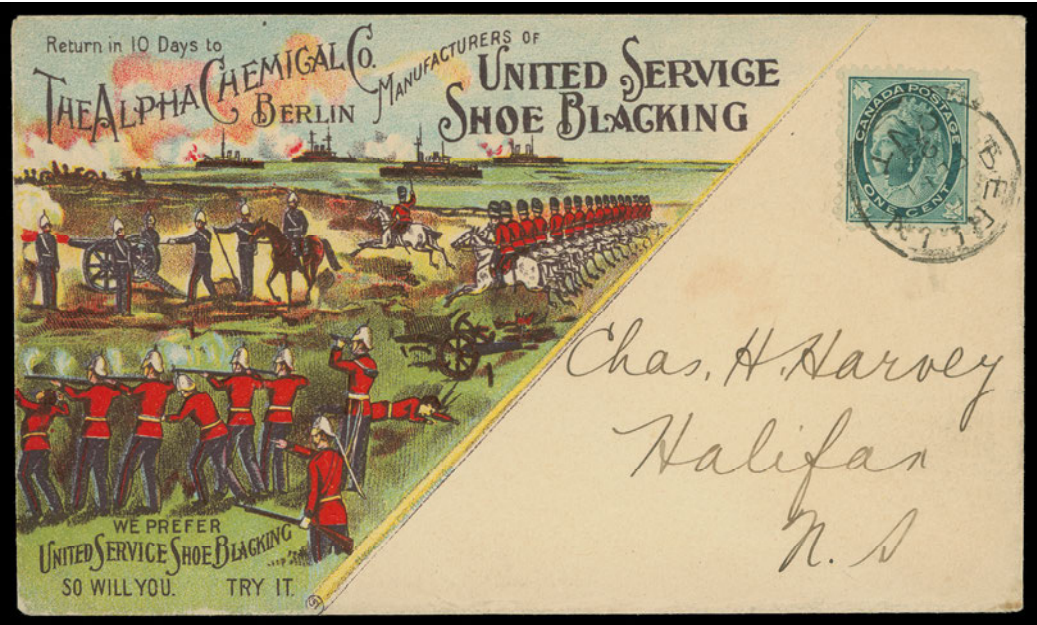 Return in 10 Days to
THE ALPHA CHEMICAL CO.
BERLIN
MANUFACTURERS OF
UNITED SERVICE
SHOE BLACKING
CANADA POSTAGE
ONE CENT
BERLIN
Chas. H. Harvey
Halifax
N. S
WE PREFER
UNITED SERVICE SHOE BLACKING
SO WILL YOU. TRY IT.